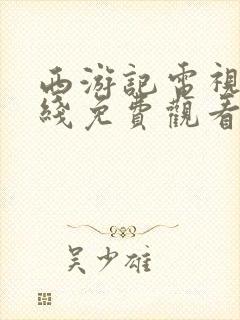 西游記電視
綫免費觀看
吴少雄